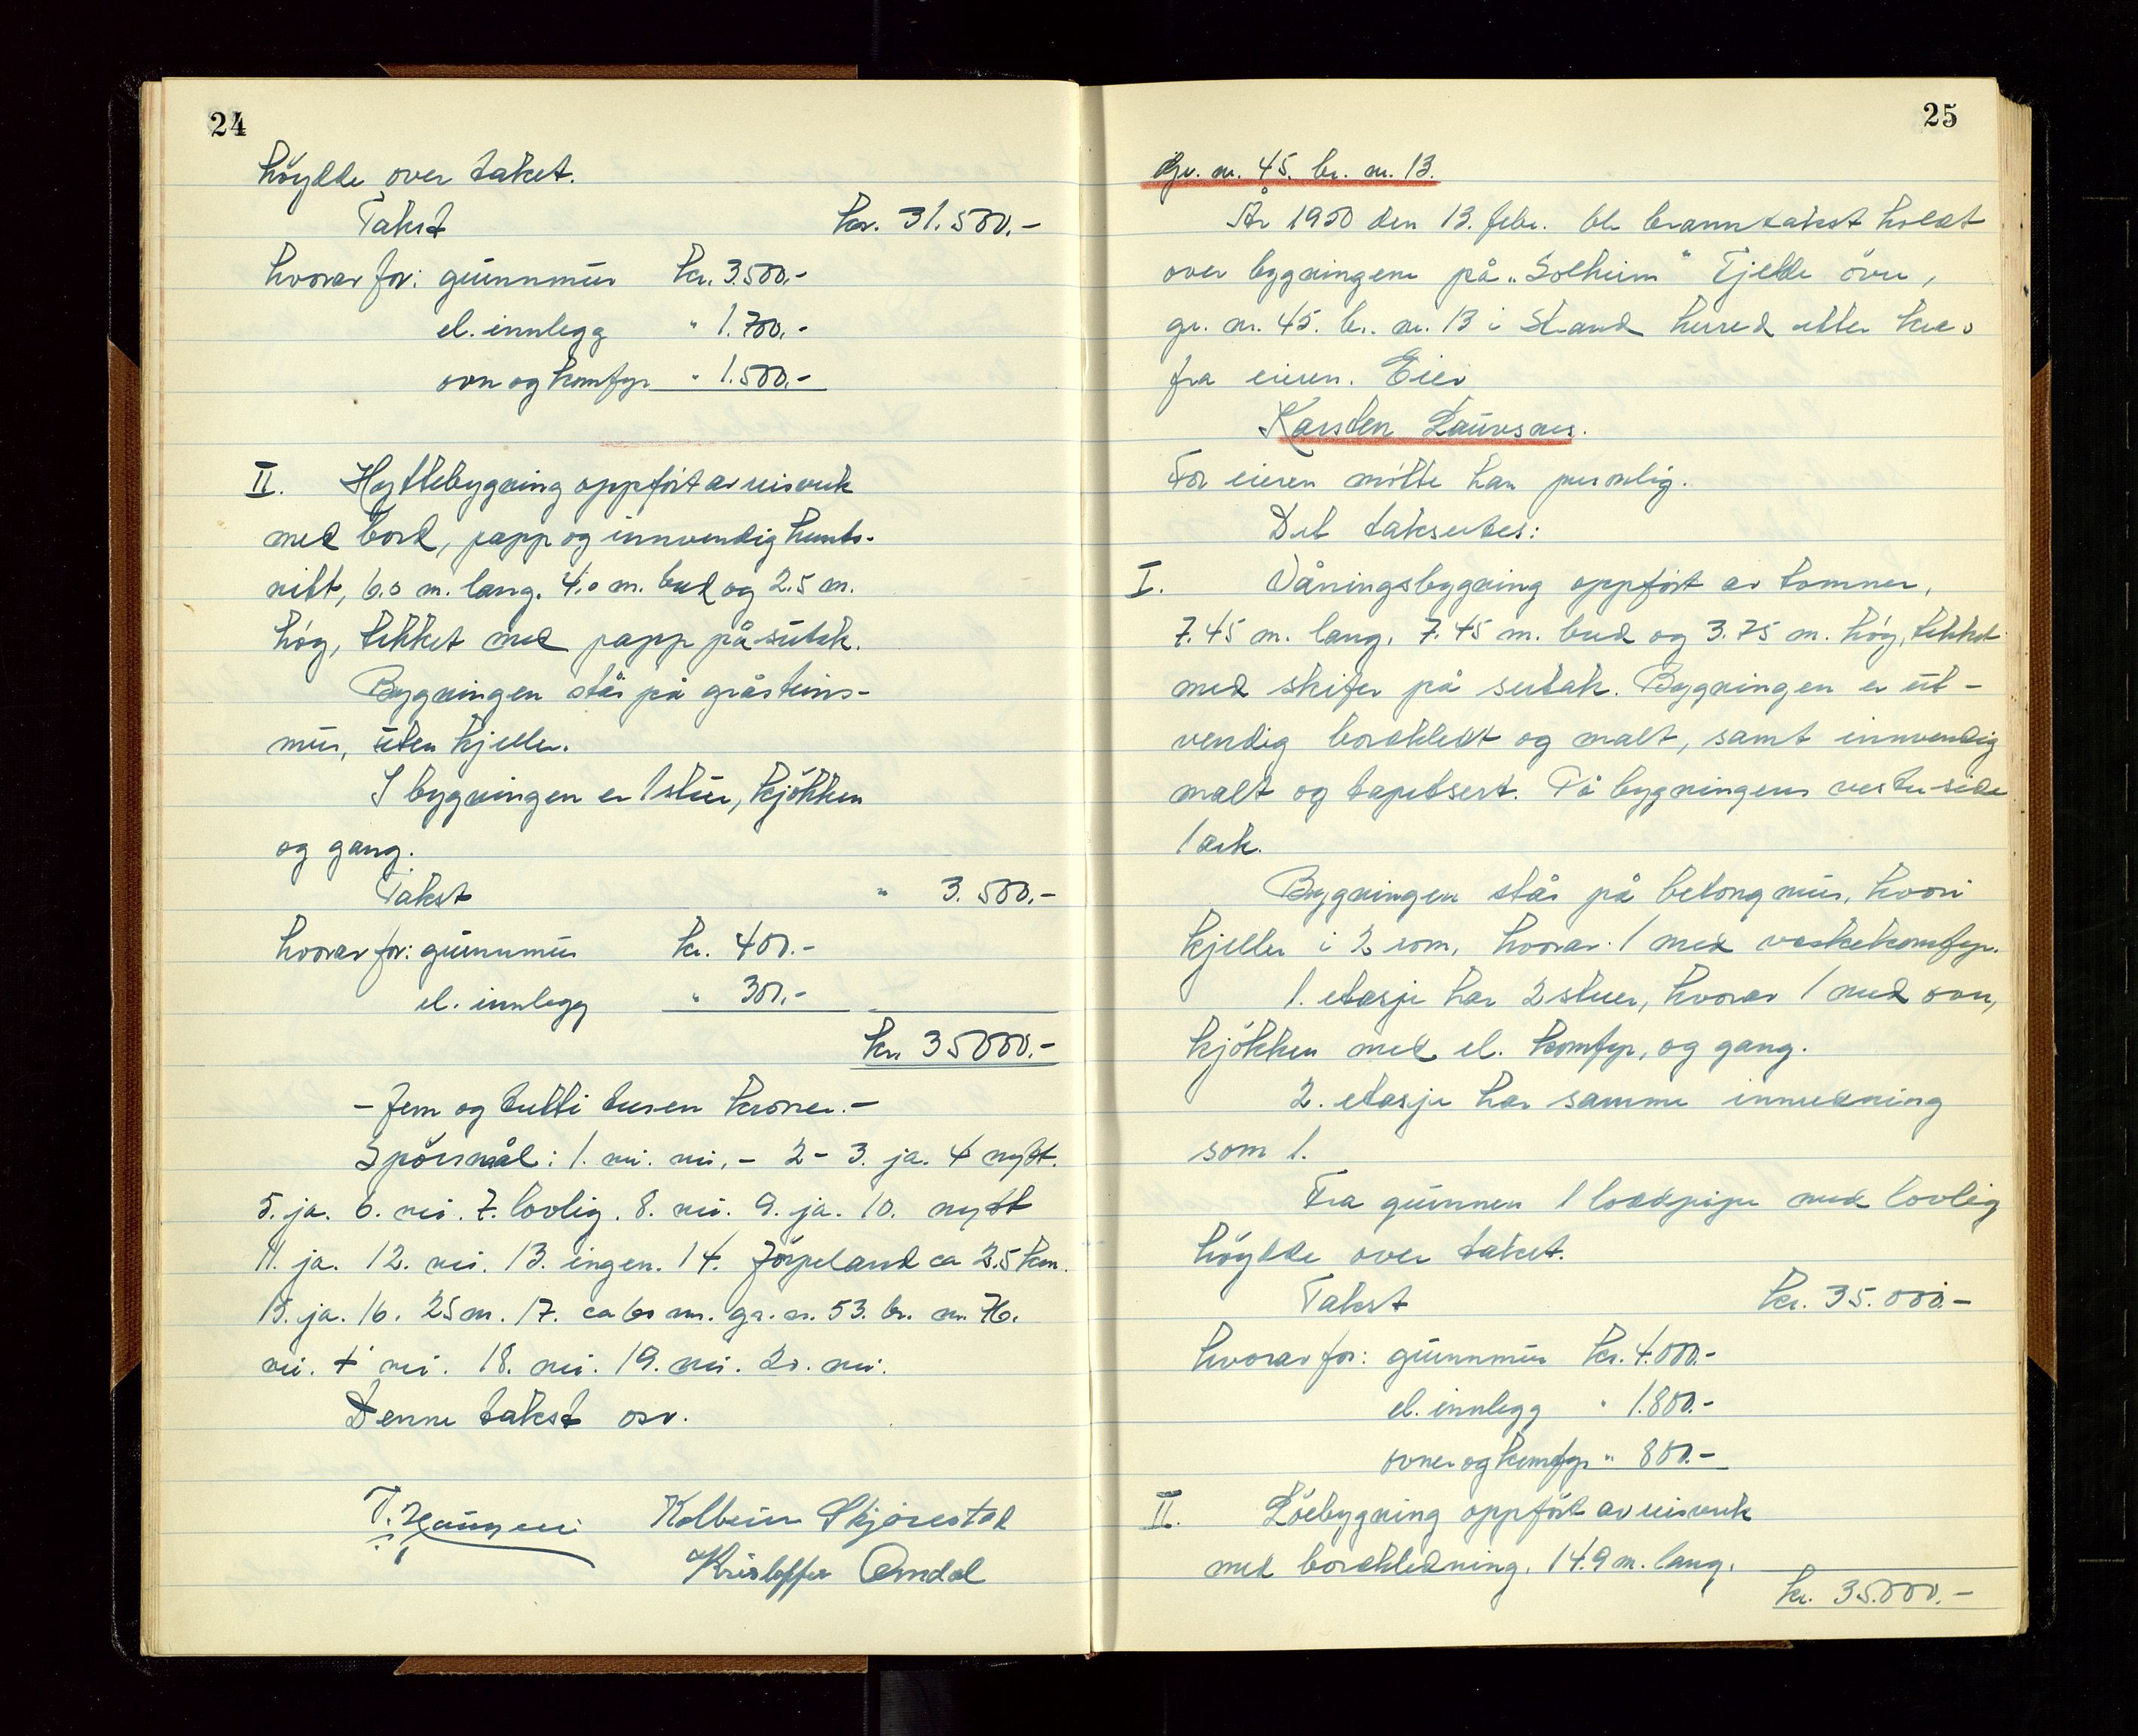 24
höydde over taket.
Takst kr. 31.500.-
hvorav for: grunnmur kr. 3.500.-
el. innlegg " 1.700.-
ovn og komfyr " 1.500.-
II. Hyttebygning oppført av reisverk
med bord, papp og innvendig hunto-
nitt, 6.0 m. lang. 4.0 m. bred og 2.5 m.
høg, tekket med papp på sutak.
Bygningen står på gråsteins-
mur, uten kjeller.
I bygningen er 1 stue, kjøkken
og gang.
Takst " 3.500.-
hvorav for: grunnmur kr. 400.-
el. innlegg " 300.-
kr. 35000.-
- Fem og tretti tusen kroner. -
Spørsmål: 1. nei. nei. - 2 - 3. ja. 4 nytt.
5. ja. 6. nei. 7. lovlig. 8. nei. 9. ja. 10. nytt
11. ja. 12. nei. 13. ingen. 14. Jørpeland ca 2.5 km.
15. ja. 16. 25 m. 17. ca 60 m. gr. nr. 53. br. nr. 76.
nei. + nei. 18. nei. 19. nei. 20. nei.
Denne takst osv.
T. Haugen Kolbein Skjørestad
Kristoffer Amdal
25
Gr. nr. 45. br. nr. 13.
År 1950 den 13. febr. ble branntakst holdt
over bygningene på "Solheim" Tjelde övre,
gr. nr. 45. br. nr. 13 i Strand herred etter krav
fra eieren. Eier
Karsten Laursnes.
For eieren møtte han personlig.
Det taksertes:
I. Våningsbygning oppført av tømmer,
7.45 m. lang. 7.45 m. bred og 3.75 m. høg, tekket
med skifer på sutak. Bygningen er ut-
vendig bordkledt og malt, samt innvendig
malt og tapetsert. På bygningens vestre side
1 ark.
Bygningen står på betongmur, hvori
kjeller i 3 rom, hvorav 1 med vaskekomfyr.
1. etasje har 2 stuer, hvorav 1 med ovn,
kjøkken med el. komfyr, og gang.
2. etasje har samme innredning
som 1.
Fra grunnen 1 loddpipe med lovlig
høydde over taket.
Takst kr. 35.000.-
hvorav for: grunnmur kr. 4.000.-
el. innlegg " 1.800.-
ovner og komfyr " 800.-
II. Löebygning oppfört av reisverk
med bordkledning. 14.9 m. lang.
kr. 35.000.-